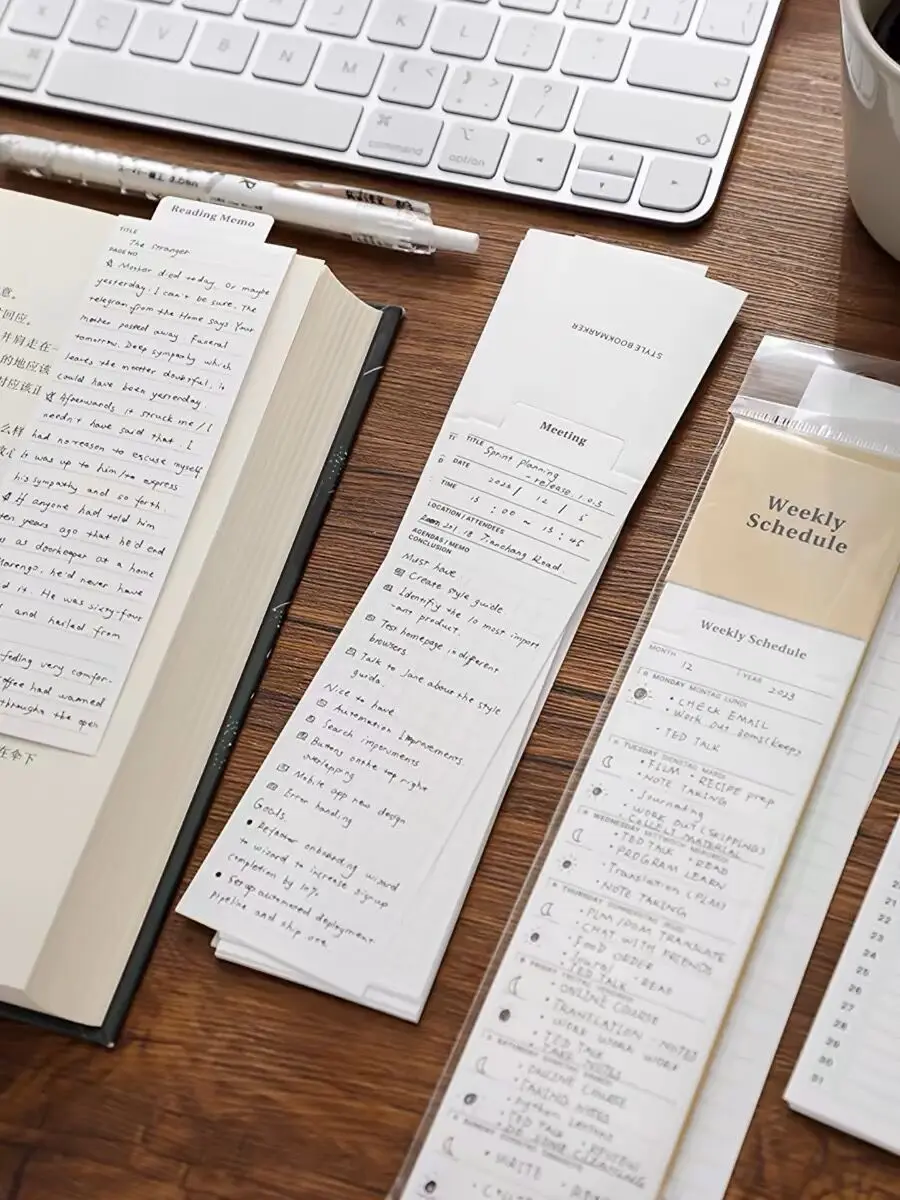 command
option
Reading Memo
TITLE
The Stranger
PAGE NO
Mother died today. Or maybe
yesterday; I can't be sure. The
telegram from the Home says Your
mother passed away. Funeral
tomorrow. Deep sympathy which
leaves the matter doubtful; it
could have been yesterday.
Afterwards it struck me /I
needn't have said that. I
had no reason to excuse myself
it was up to him/to express
his sympathy and so forth.
If anyone had told him
ten years ago that he'd end
as doorkeeper at a home
Marengo, he'd never have
it. He was sixty-four
and hailed from
feeling very comfor-
coffee had warmed
through the open
意。
回应。
并肩走在一
的地应该
么样
STYLE BOOKMARKER
Meeting
TITLE
Sprint Planning
- release 1.0.3
DATE
2023 / 12 / 5
TIME
15 : 00 ~ 15 : 45
LOCATION / ATTENDEES
Room 201 18 Tianchang Road
AGENDAS / MEMO
CONCLUSION
Must have
Create style guide.
Identify the 10 most import
-ant product.
Test homepage in different
browsers
Talk to Jane about the style
guide.
Nice to have
Automation Improvements.
Search improments
Buttons on the top right
overlapping
Mobile app new design
Error handing
Goals
• Refactor onboarding wizard
to wizard to increase signup
completion by 10%
• Setup automated deployment
Pipeline and ship one
Weekly
Schedule
Weekly Schedule
MONTH 12 YEAR 2023
MONDAY MONTAG LUNDI
• CHECK EMAIL
• Work out
• TED TALK
TUESDAY DIENSTAG MARDI
• FILM • RECIPE prep
• NOTE TAKING
• Journaling
• WORK OUT (SKIPPING)
• COLLECT MATERIAL
WEDNESDAY MITTWOCH MERCREDI
• TED TALK • READ
• PROGRAM LEARN
• Translation (PLM)
• NOTE TAKING
THURSDAY
• PLM/PDM TRANSLATE
• CHAT WITH FRIENDS
• FOOD ORDER
• Journal • READ
• TED TALK
FRIDAY
• ONLINE COURSE
• TRANSLATION • NOTES
• WORK WORK WORK
• TED TALK
• TAKE NOTES
• ONLINE COURSE
• TAKING NOTES
• Python
• TED TALK • REVIEW
• WRITE
21
22
23
24
25
26
27
28
29
30
31